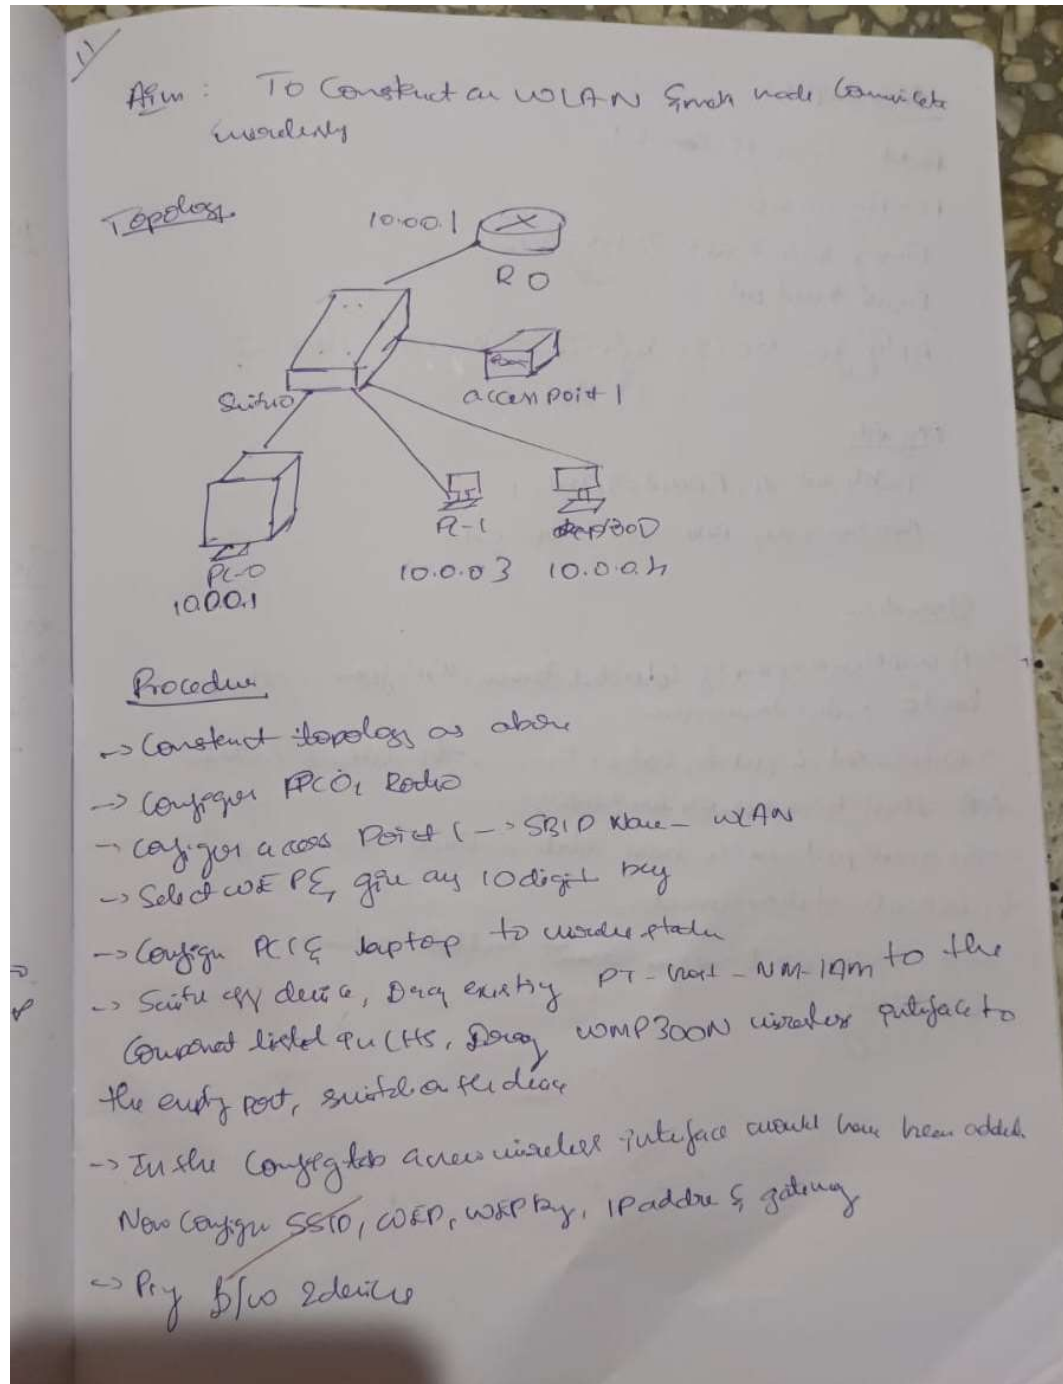 11
Aim : To Construct an WLAN & make node Communicate
wirelessly
Topology
10.00.1
R 0
Switch0
access point 1
PC-0
10.0.0.1
PC-1
10.0.03
10.0.0.4
Procedure
-> Construct topology as above
-> Configure PC0,
-> Configure access Point 1 -> SSID Name - WLAN
-> Select WEP & give any 10 digit key
-> Configure PC1 & laptop to wireless
-> Switch off device, Drag existing PT-host-NM-1AM to the
Component listed in LHS, Drag WMP300N wireless interface to
the empty port, switch on the device
-> In the Config tab a new wireless interface would have been added.
Now Configure SSID, WEP, WEP key, IP addre & gateway
-> Ping b/w 2 devices